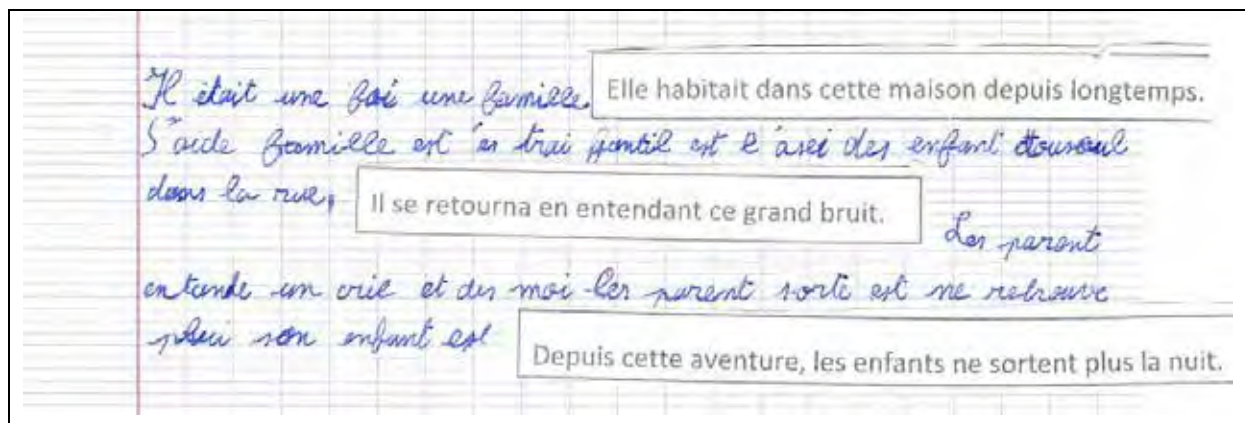 Il était une foi une famille. Elle habitait dans cette maison depuis longtemps.
famille est trai gentil est l'asei des enfant tousoul
dans la rue, Il se retourna en entendant ce grand bruit.
Les parent
entende un crie et des moi les parent sorte est ne retrouve
plui son enfant est Depuis cette aventure, les enfants ne sortent plus la nuit.